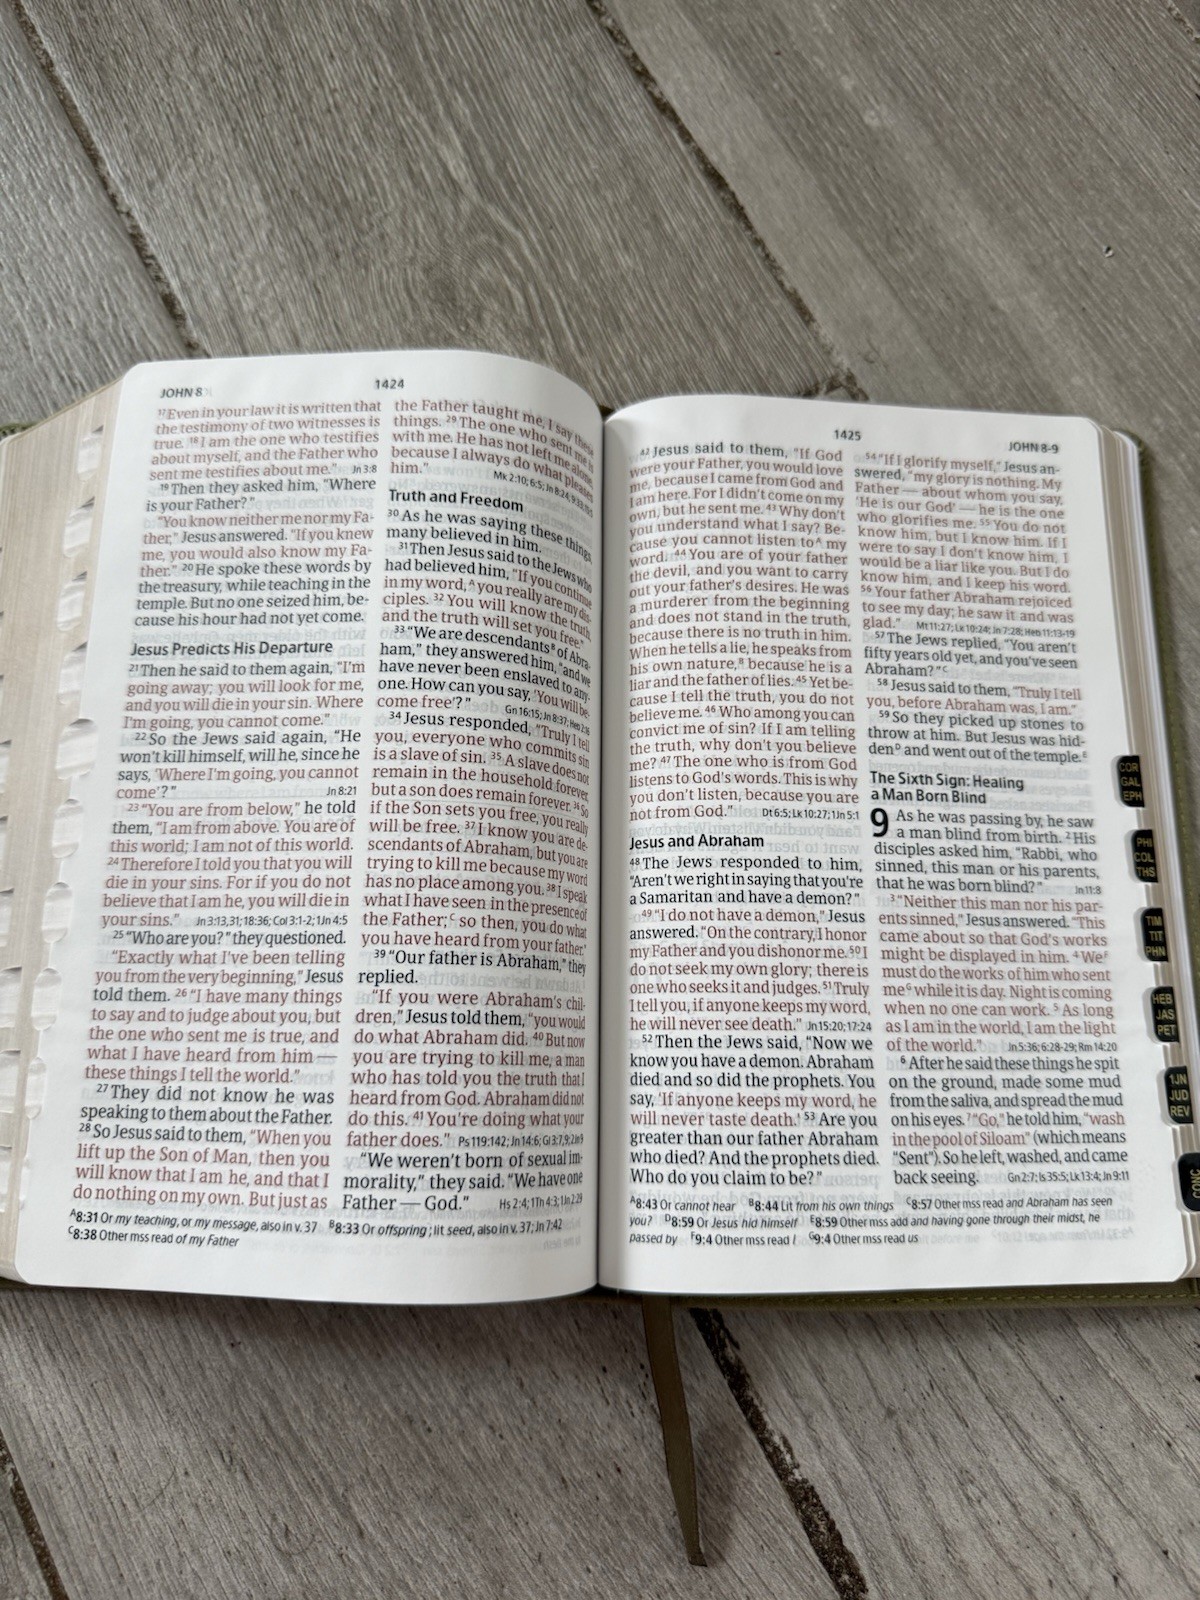 JOHN 8
1424
¹⁷ Even in your law it is written that
the testimony of two witnesses is
true. ¹⁸ I am the one who testifies
about myself, and the Father who
sent me testifies about me." Jn 3:8
¹⁹ Then they asked him, "Where
is your Father?"
"You know neither me nor my Fa-
ther," Jesus answered. "If you knew
me, you would also know my Fa-
ther." ²⁰ He spoke these words by
the treasury, while teaching in the
temple. But no one seized him, be-
cause his hour had not yet come.
Jesus Predicts His Departure
²¹ Then he said to them again, "I'm
going away; you will look for me,
and you will die in your sin. Where
I'm going, you cannot come."
²² So the Jews said again, "He
won't kill himself, will he, since he
says, 'Where I'm going, you cannot
come'?" Jn 8:21
²³ "You are from below," he told
them, "I am from above. You are of
this world; I am not of this world.
²⁴ Therefore I told you that you will
die in your sins. For if you do not
believe that I am he, you will die in
your sins." Jn 3:13,31; 18:36; Col 3:1-2; 1Jn 4:5
²⁵ "Who are you?" they questioned.
"Exactly what I've been telling
you from the very beginning," Jesus
told them. ²⁶ "I have many things
to say and to judge about you, but
the one who sent me is true, and
what I have heard from him —
these things I tell the world."
²⁷ They did not know he was
speaking to them about the Father.
²⁸ So Jesus said to them, "When you
lift up the Son of Man, then you
will know that I am he, and that I
do nothing on my own. But just as
the Father taught me, I say these
things. ²⁹ The one who sent me is
with me. He has not left me alone,
because I always do what pleases
him." Mk 2:10; 6:5; Jn 8:24,
Truth and Freedom
³⁰ As he was saying these things,
many believed in him.
³¹ Then Jesus said to the Jews who
had believed him, "If you continue
in my word,ᴬ you really are my dis-
ciples. ³² You will know the truth,
and the truth will set you free."
³³ "We are descendantsᴮ of Abra-
ham," they answered him, "and we
have never been enslaved to any-
one. How can you say, 'You will be-
come free'?" Gn 16:15; Jn 8:37;
³⁴ Jesus responded, "Truly I tell
you, everyone who commits sin
is a slave of sin. ³⁵ A slave does not
remain in the household forever,
but a son does remain forever. ³⁶ So
if the Son sets you free, you really
will be free. ³⁷ I know you are de-
scendants of Abraham, but you are
trying to kill me because my word
has no place among you. ³⁸ I speak
what I have seen in the presence of
the Father;ᶜ so then, you do what
you have heard from your father."
³⁹ "Our father is Abraham," they
replied.
"If you were Abraham's chil-
dren," Jesus told them, "you would
do what Abraham did. ⁴⁰ But now
you are trying to kill me, a man
who has told you the truth that I
heard from God. Abraham did not
do this. ⁴¹ You're doing what your
father does." Ps 119:142; Jn 14:6; Gl 3:7,9;
"We weren't born of sexual im-
morality," they said. "We have one
Father — God." Hs 2:4; 1Th 4:3; 1Jn 2:29
ᴬ8:31 Or my teaching, or my message, also in v. 37 ᴮ8:33 Or offspring; lit seed, also in v. 37; Jn 7:42
ᶜ8:38 Other mss read of my Father
1425
JOHN 8-9
⁴² Jesus said to them, "If God
were your Father, you would love
me, because I came from God and
I am here. For I didn't come on my
own, but he sent me. ⁴³ Why don't
you understand what I say? Be-
cause you cannot listen toᴬ my
word. ⁴⁴ You are of your father
the devil, and you want to carry
out your father's desires. He was
a murderer from the beginning
and does not stand in the truth,
because there is no truth in him.
When he tells a lie, he speaks from
his own nature,ᴮ because he is a
liar and the father of lies. ⁴⁵ Yet be-
cause I tell the truth, you do not
believe me. ⁴⁶ Who among you can
convict me of sin? If I am telling
the truth, why don't you believe
me? ⁴⁷ The one who is from God
listens to God's words. This is why
you don't listen, because you are
not from God." Dt 6:5; Lk 10:27; 1Jn 5:1
Jesus and Abraham
⁴⁸ The Jews responded to him,
"Aren't we right in saying that you're
a Samaritan and have a demon?"
⁴⁹ "I do not have a demon," Jesus
answered. "On the contrary, I honor
my Father and you dishonor me. ⁵⁰ I
do not seek my own glory; there is
one who seeks it and judges. ⁵¹ Truly
I tell you, if anyone keeps my word,
he will never see death." Jn 15:20; 17:24
⁵² Then the Jews said, "Now we
know you have a demon. Abraham
died and so did the prophets. You
say, 'If anyone keeps my word, he
will never taste death.' ⁵³ Are you
greater than our father Abraham
who died? And the prophets died.
Who do you claim to be?"
⁵⁴ "If I glorify myself," Jesus an-
swered, "my glory is nothing. My
Father — about whom you say,
'He is our God' — he is the one
who glorifies me. ⁵⁵ You do not
know him, but I know him. If I
were to say I don't know him, I
would be a liar like you. But I do
know him, and I keep his word.
⁵⁶ Your father Abraham rejoiced
to see my day; he saw it and was
glad." Mt 11:27; Lk 10:24; Jn 7:28; Heb 11:13-19
⁵⁷ The Jews replied, "You aren't
fifty years old yet, and you've seen
Abraham?"ᶜ
⁵⁸ Jesus said to them, "Truly I tell
you, before Abraham was, I am."
⁵⁹ So they picked up stones to
throw at him. But Jesus was hid-
denᴰ and went out of the temple.ᴱ
The Sixth Sign: Healing
a Man Born Blind
9 As he was passing by, he saw
a man blind from birth. ² His
disciples asked him, "Rabbi, who
sinned, this man or his parents,
that he was born blind?" Jn 11:8
³ "Neither this man nor his par-
ents sinned," Jesus answered. "This
came about so that God's works
might be displayed in him. ⁴ Weᶠ
must do the works of him who sent
meᴳ while it is day. Night is coming
when no one can work. ⁵ As long
as I am in the world, I am the light
of the world." Jn 5:36; 6:28-29; Rm 14:20
⁶ After he said these things he spit
on the ground, made some mud
from the saliva, and spread the mud
on his eyes. ⁷ "Go," he told him, "wash
in the pool of Siloam" (which means
"Sent"). So he left, washed, and came
back seeing. Gn 2:7; Is 35:5; Lk 13:4; Jn 9:11
ᴬ8:43 Or cannot hear ᴮ8:44 Lit from his own things ᶜ8:57 Other mss read and Abraham has seen
you? ᴰ8:59 Or Jesus hid himself ᴱ8:59 Other mss add and having gone through their midst, he
passed by ᶠ9:4 Other mss read I ᴳ9:4 Other mss read us
COR
GAL
EPH
PHI
COL
THS
TIM
TIT
PHN
HEB
JAS
PET
1JN
JUD
REV
CONC